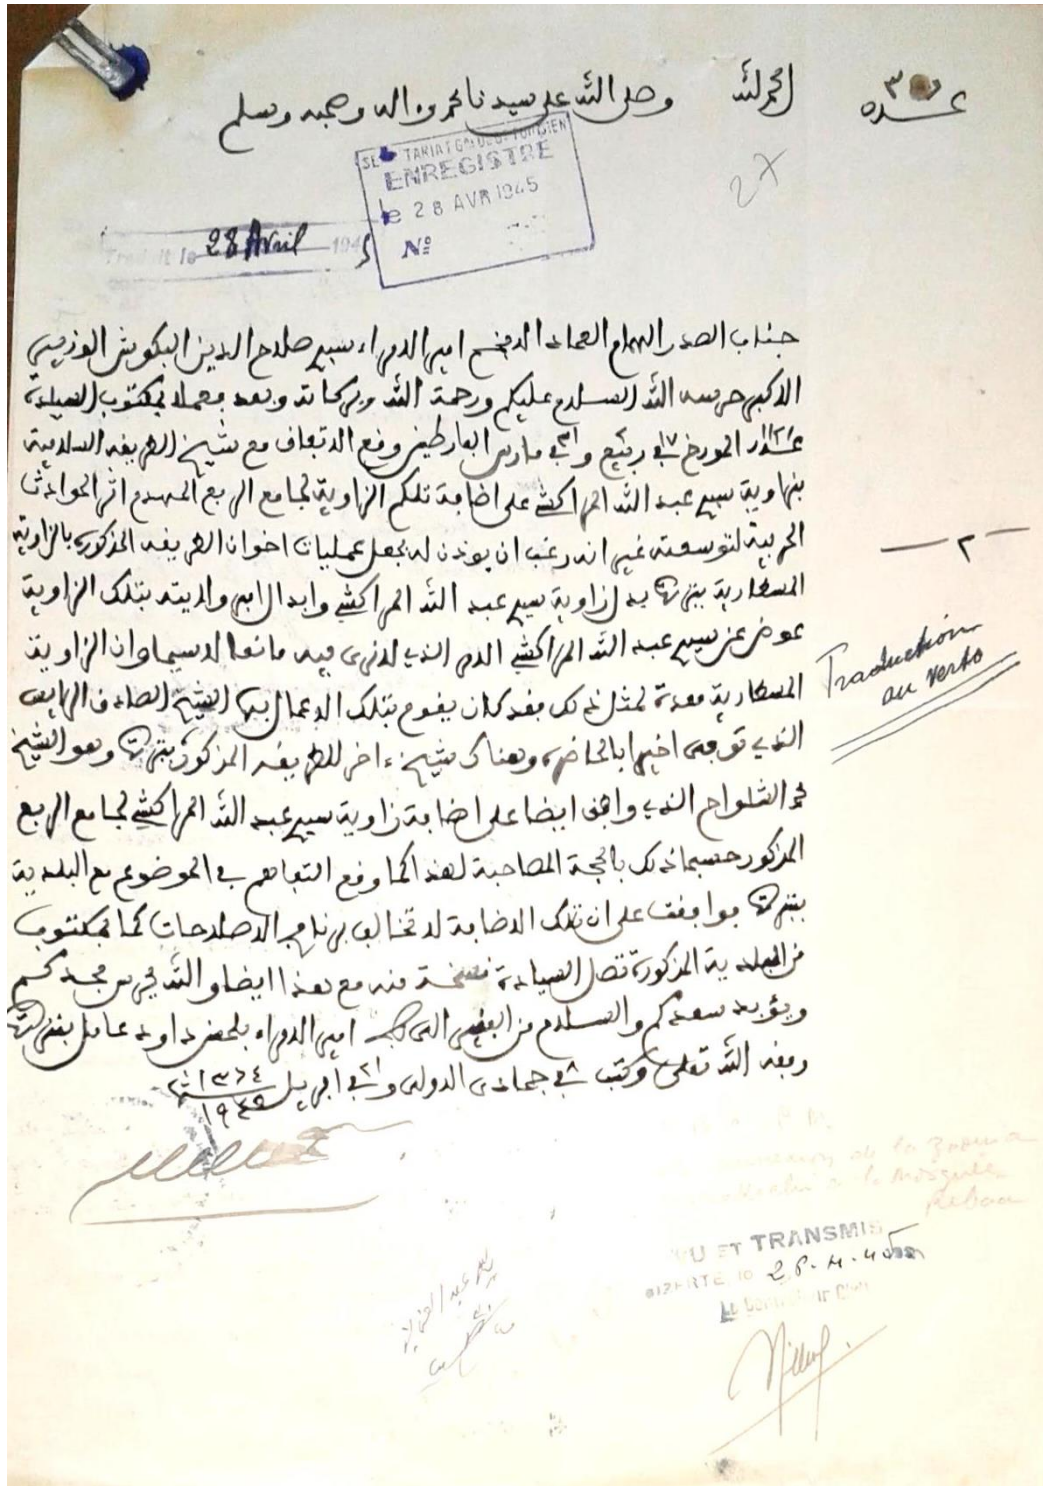 الحمد لله
وصلى الله على سيدنا محمد وءاله وصحبه وسلم
عدد
27
SECRETARIAT Gal DU GOUVt TUNISIEN
ENREGISTRE
le 28 AVR 1945
Nº
Traduit le 28 Avril 1945
جناب الصدر الهمام العماد الافخم امير الامراء سيدي صلاح الدين البكوش الوزير
الاكبر حرسه الله السلام عليكم ورحمة الله وبركاته وبعد فعملا بمكتوب السيادة
عدد المورخ في ربيع وفي مارس الفارطين وقع الاتفاق مع شيخ الطريقة السلامية
بزاوية سيدي عبد الله المراكشي على اضافة تلكم الزاوية لجامع الربع المهدم اثر الحوادث
الحربية لتوسعته غير انه رغب ان يوذن له بجعل عمليات اخوان الطريقة المذكورة بالزاوية
بنزرت بدل زاوية سيدي عبد الله المراكشي وابدال امر ولايته بتلك الزاوية
عوض عن سيدي عبد الله المراكشي الامر الذي لا نرى فيه مانعا لا سيما وان الزاوية
معدة لمثل ذلك فقد كان يقوم بتلك الاعمال بها الشيخ الصادق
الذي توفى اخيرا بالحاضرة وهناك شيخ ءاخر للطريقة المذكورة ببنزرت وهو الشيخ
محمد الشلواح الذي وافق ايضا على اضافة زاوية سيدي عبد الله المراكشي لجامع الربع
المذكور حسبما ذلك بالحجة المصاحبة لهذا كما وقع التفاهم في الموضوع مع البلدية
ببنزرت فوافقت على ان تلك الاضافة لا تخالف برنامج الاصلاحات كما بمكتوب
من البلدية المذكورة تصل السيادة نسخة منه مع هذا ايضا والله يحرس مجدكم
ويؤيد سعدكم والسلام من الفقير الى ربه امير الامراء بلحسن داود عامل بنزرت
وفقه الله تعلى وكتب في جمادى الاولى وفي ابريل ١٣٦٤
١٩٤٥
— ٢ —
Traduction
au verso
de la Zaouia
la Mosquée
Rebaa
VU ET TRANSMIS
BIZERTE le 28-4-45
Le Contrôleur Civil